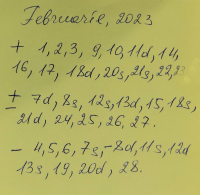 Februarie, 2023
+ 1,2,3, 9,10,11d,14,
16, 17, 18d, 20s, 21s, 22,
± 7d, 8s, 12s, 13d, 15, 18s,
21d, 24, 25, 26, 27.
- 4,5,6, 7s, -8d, 11s, 12d
13s, 19, 20d, 28.